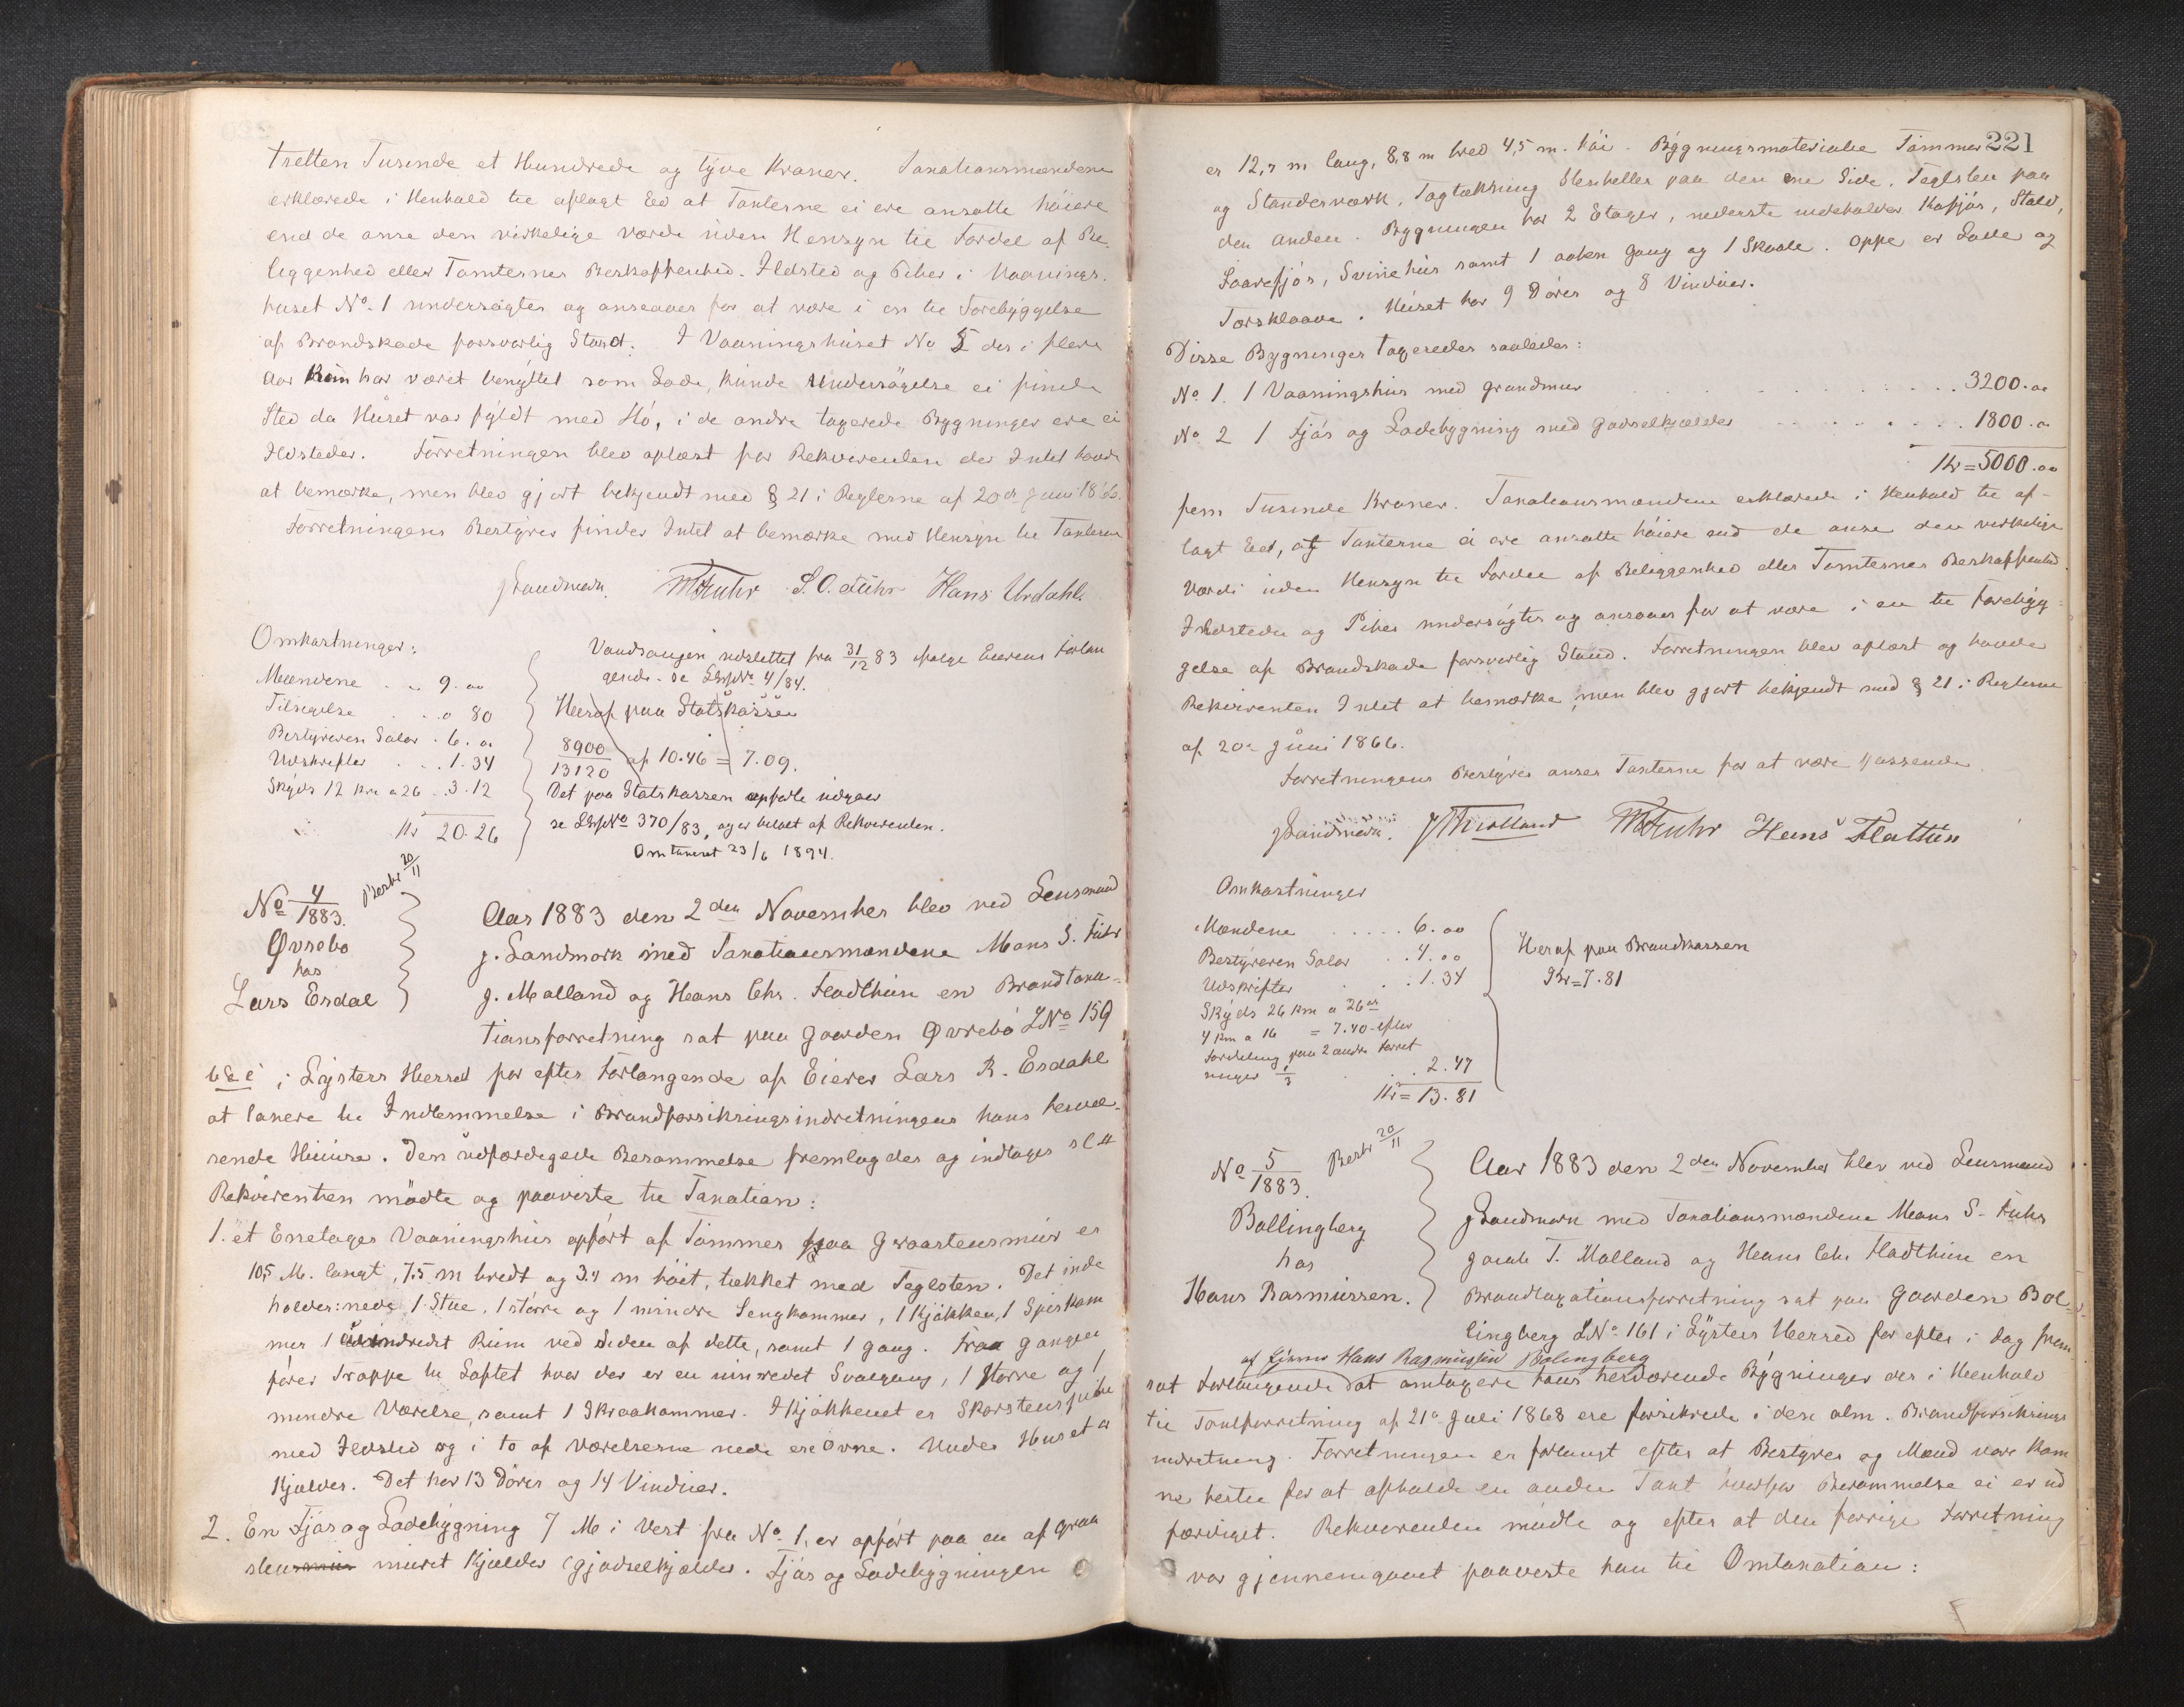 tretten Tusinde et Hundrede og tyve Kroner. Taxationsmændene
erklærede i Henhold til aflagt Eed at Taxterne ei ere ansatte høiere
end de anse den virkelige Værde uden Hensyn til Fordel af Be-
liggenhed eller Tomternes Beskaffenhed. Ildsted og Piber i Vaanings-
huset No. 1 undersøgtes og ansaaes for at være i en til Forebyggelse
af Brandskade forsvarlig Stand. I Vaaningshuset No 5 der i flere
Aar kun har været benyttet som Lade, kunde Undersøgelse ei finde
Sted da Huset var fyldt med Hø, i de andre taxerede Bygninger ere ei
Ildsteder. Forretningen blev oplæst for Rekvirenten der Intet havde
at bemærke, men blev gjort bekjendt med § 21 i Reglerne af 20de Juni 1866.
Forretningens Bestyrer finder Intet at bemærke med Hensyn til Taxterne
J Landmark. M S Fuhr S. O. Fuhr Hans Urdahl.
Omkostninger:
Mændene . . 9.00
Tilsigelse . . 0 80
Bestyreren Salær . 6. 00
Udskrifter . . . 1.34
Skyds 12 Km a 26 . . 3.12
Kr 20.26
Vandsaugen udslettet fra 31/12 83 ifølge Eierens Forlan
gende. Se No 4/84.
Heraf paa Statskassen
8900/13120 af 10.46 = 7.09.
Det paa Statskassen opførte udgaaer
se No 370/83, og er betalt af Rekvirenten.
Omtaxeret 23/6 1894.
No 4/1883.
Beskr 20/11
Øvrebø
hos
Lars Esdal
Aar 1883 den 2den November blev ved Lensmand
J. Landmark med Taxationsmændene Mons S. Fuhr
J. Molland og Hans Chr. Fladthun en Brandtaxa-
tionsforretning sat paa Gaarden Øvrebø LNo 159
b & c i Lysters Herred for efter Forlangende af Eieren Lars R. Esdahl
at taxere til Indlemmelse i Brandforsikringsindretningen hans hervæ-
rende Huuse. Den udfærdigede Berammelse fremlagdes og indtages
Rekvirenten mødte og paaviste til Taxation:
1. et Enetages Vaaningshus opført af Tømmer paa Graastensmur er
10,5 M. langt, 7.5 m bredt og 3.4 m høit, tækket med Teglsten. Det inde
holder: nede 1 Stue, 1 større og 1 mindre Sengkammer, 1 Kjøkken, 1 Spiskam
mer 1 uindredet Rum ved Siden af dette, samt 1 gang. Fra Gangen
fører Trappe til Loftet hvor der er en uinredet Svalgang, 1 større og 1
mindre Værelse, samt 1 Skraakammer. I Kjøkkenet er Skorstenspibe
med Ildsted og i to af Værelserne nede ere Ovne. Under Huset er
Kjælder. Det har 13 Dører og 14 Vinduer.
2. En Fjøs og Ladebygning 7 M i Vest fra No 1, er opført paa en af Graa
sten muret Kjælder (gjødselkjælder. Fjøs og Ladebygningen
221
er 12,7 m lang, 8,8 m bred 4,5 m. høi. Bygningsmaterialie Tømmer
og Standerværk, Tagtækning Stenheller paa den ene Side, Teglsten paa
den anden. Bygningen har 2 Etager, nederste indeholder Kofjøs, Stald,
Faarefjøs, Svinehus samt 1 aaben Gang og 1 Skaale. oppe er Lade og
Torsklaave. Huset har 9 Dører og 8 Vinduer.
Disse Bygninger taxeredes saaledes:
No 1. 1 Vaaningshus med grundmur . . . . 3200.00
No 2 1 Fjøs og Ladebygning med Gjødselkjælder . . . . 1800.00
Kr = 5000.00
fem Tusinde Kroner. Taxationsmændene erklærede i Henhold til af-
lagt Eed, at Taxterne ei ere ansatte høiere end de anse den virkelige
Værdi uden Hensyn til Fordel af Beliggenhed eller Tomternes Beskaffenhed.
Ildstedu og Piber undersøgtes og ansaaes for at være i en til Forebyg-
gelse af Brandskade forsvarlig Stand. Forretningen blev oplæst og havde
Rekvirenten Intet at bemærke, men blev gjort bekjendt med § 21 i Reglerne
af 20de Juni 1866.
Forretningens Bestyrer anser Taxterne for at være passende.
J Landmark. J T Molland M S Fuhr Hans Flattun
Omkostninger
Mændene . . . . . 6.00
Bestyreren Salær . . 4.00
Udskrifter . . . 1.34
Skyds 26 Km a 26 ør
4 Km a 16 = 7.40 efter
Fordeling paa 2 andre Forret
ninger 1/3 . . . 2.47
Kr = 13.81
Heraf paa Brandkassen
Kr = 7.81
No 5/1883.
Beskr 20/11
Bollingberg
hos
Hans Rasmussen.
Aar 1883 den 2den November blev ved Lensmand
J Landmark med Taxationsmændene Mons S. Fuhr
Jacob T. Molland og Hans Chr Fladthun en
Brandtaxationsforretning sat paa Gaarden Bol-
lingberg LNo 161 i Lysters Herred for efter i Dag frem
af Eieren Hans Rasmussen Bolingberg
sat Forlangende at omtaxere hans herværende Bygninger der i Henhold
til Taxtforretning af 21de Juli 1868 ere forsikrede i den alm. Brandforsikrings
indretning. Forretningen er forlangt efter at Bestyrer og Mænd vare kom
ne hertil for at afholde en anden Taxt hvorfor Berammelse ei er ud
færdiget. Rekvirenten mødte og efter at den forrige Forretning
var gjennemgaaet paaviste han til Omtaxation: